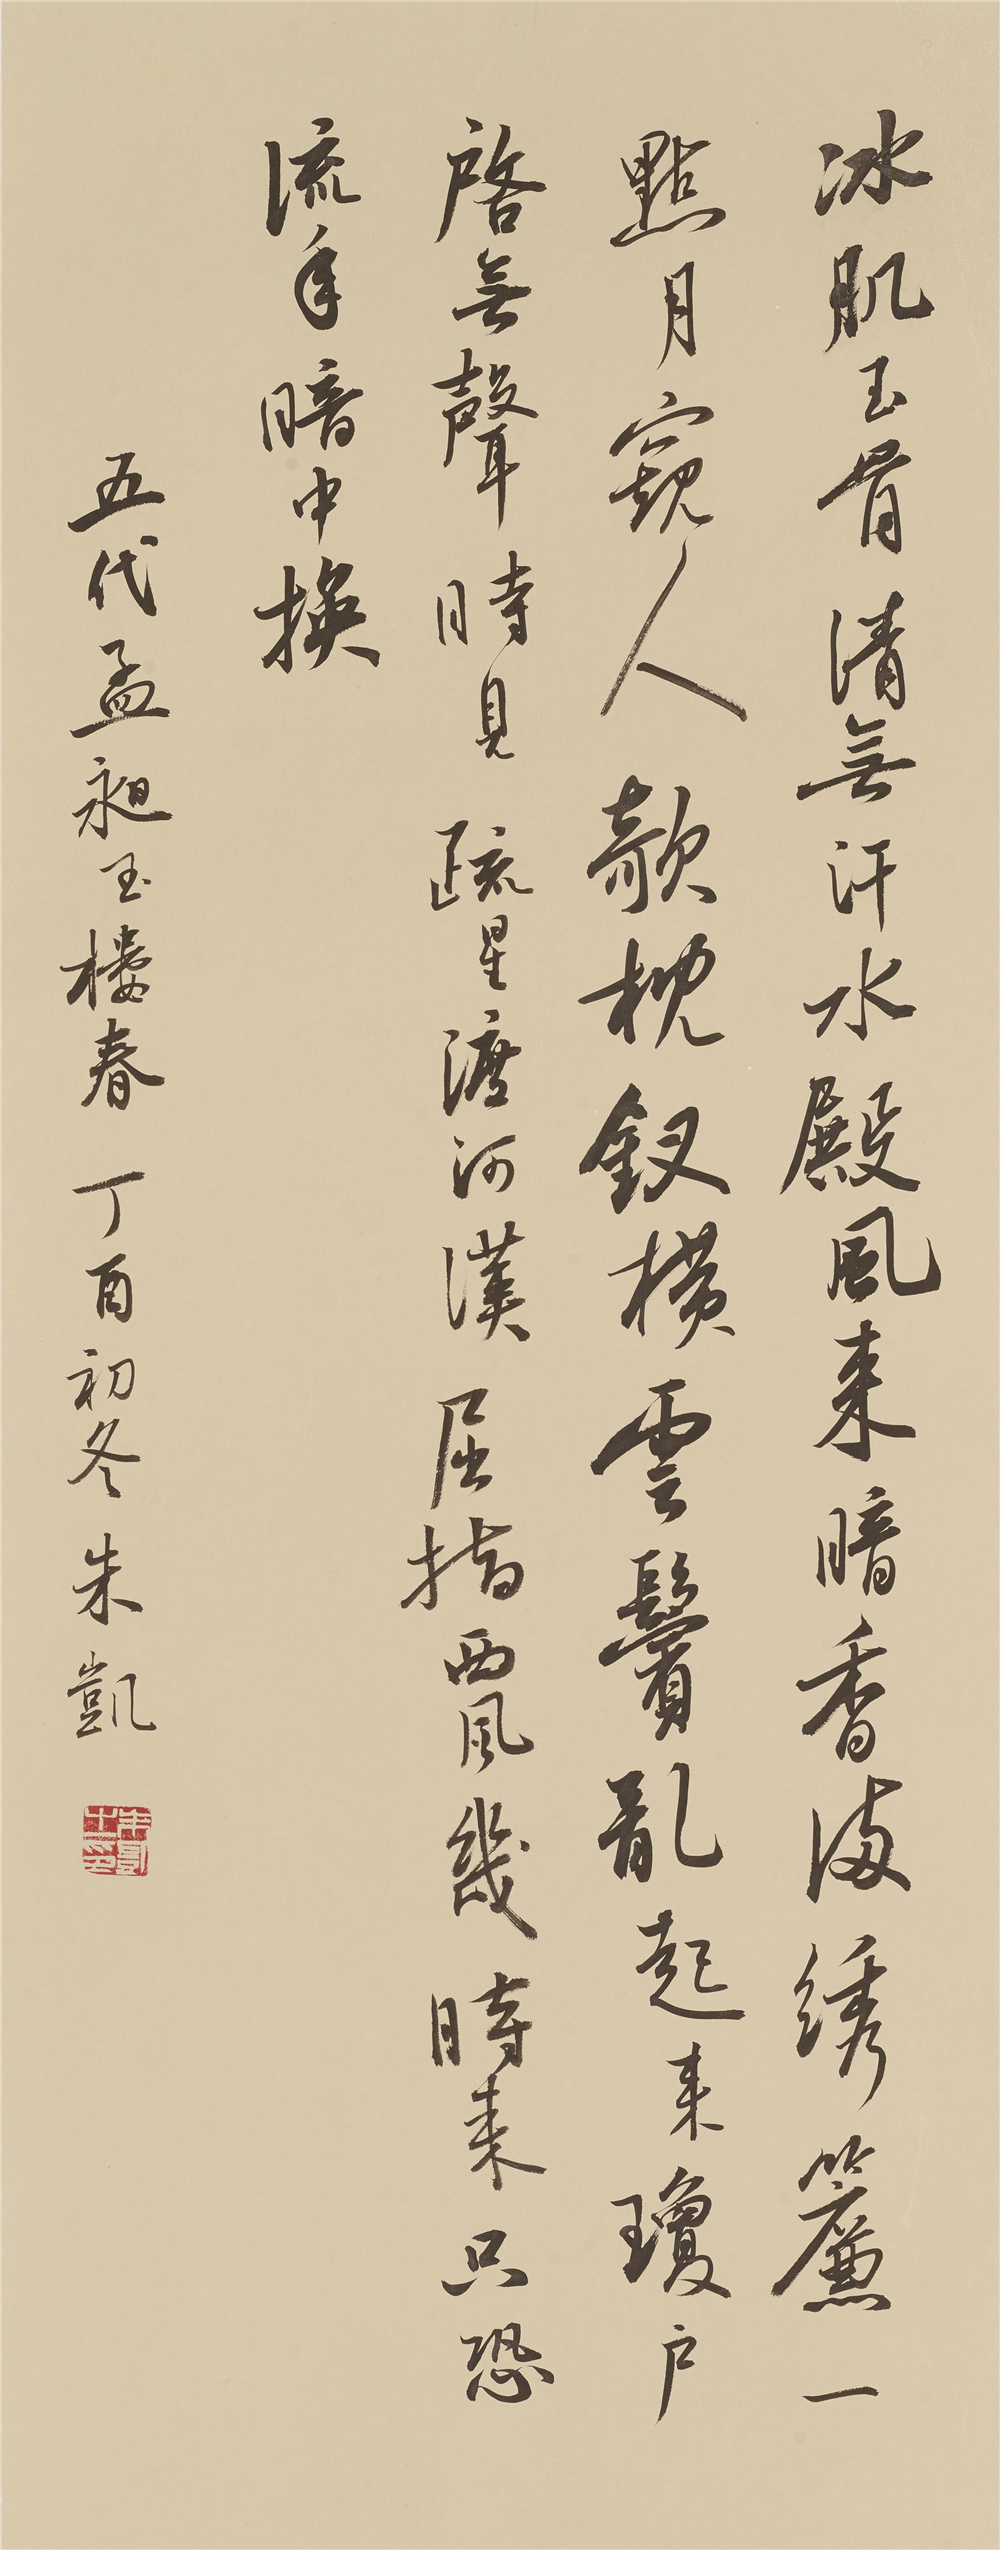 冰肌玉骨清無汗水殿風来暗香滿綉簾一
點月窺人欹枕釵橫雲鬢亂起来瓊户
啓無聲時見疏星渡河漢屈指西風幾時来只恐
流年暗中換
五代孟昶玉樓春丁酉初冬朱凱